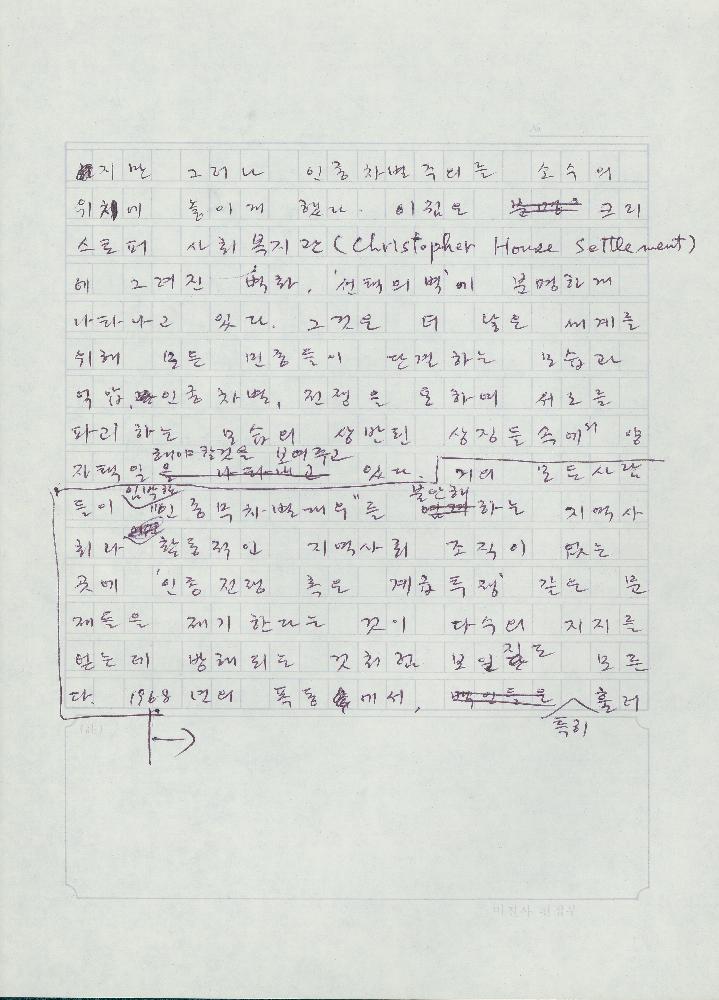 No.
지만 그러나 인종차별주의를 소수의
위치에 놓이게 했다. 이점은 분명히 크리
스토퍼 사회복지관(Christopher House Settlement)
에 그려진 벽화, '선택의 벽'에 분명하게
나타나고 있다. 그것은 더 낳은 세계를
위해 모든 민중들이 단결하는 모습과
억압, 인종차별, 전쟁을 통하여 서로를
파괴하는 모습의 상반된 상징들속에의 양
해야할것을 보여주고
자택일을 나타내고 있다. 거의 모든사람
임박한 불안해
들이 "인종무차별대우"를 하는 지역사
회나 활동적인 지역사회 조직이 없는
곳에 '인종전쟁 혹은 계급투쟁' 같은 문
제들을 제기한다는 것이 다수의 지지를
얻는데 방해되는 것처럼 보일지도 모른
다. 1968년의 폭동에서, 백인들은 흘러
특히
미진사 편집부